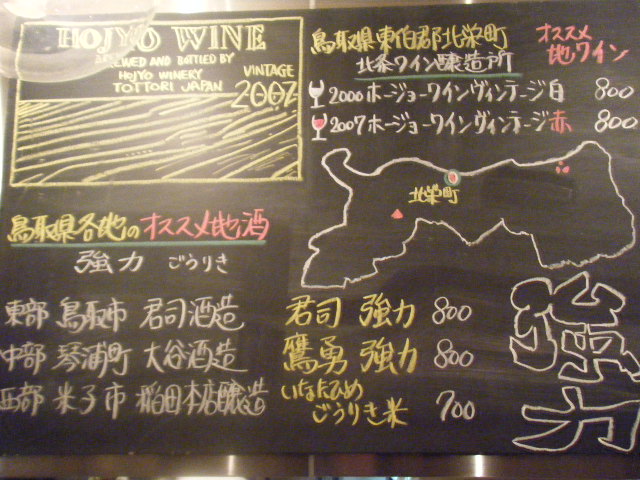 HOJYO WINE
BREWED AND BOTTLED BY
HOJYO WINERY
TOTTORI JAPAN
VINTAGE
2007
鳥取県東伯郡北栄町
北条ワイン醸造所
オススメ
地ワイン
2000ホージョーワインヴィンテージ白 800
2007ホージョーワインヴィンテージ赤 800
北栄町
鳥取県各地のオススメ地酒
強力 ごうりき
東部 鳥取市 君司酒造 君司 強力 800
中部 琴浦町 大谷酒造 鷹勇 強力 800
西部 米子市 稲田本店醸造 いなたひめ ごうりき米 700
強力